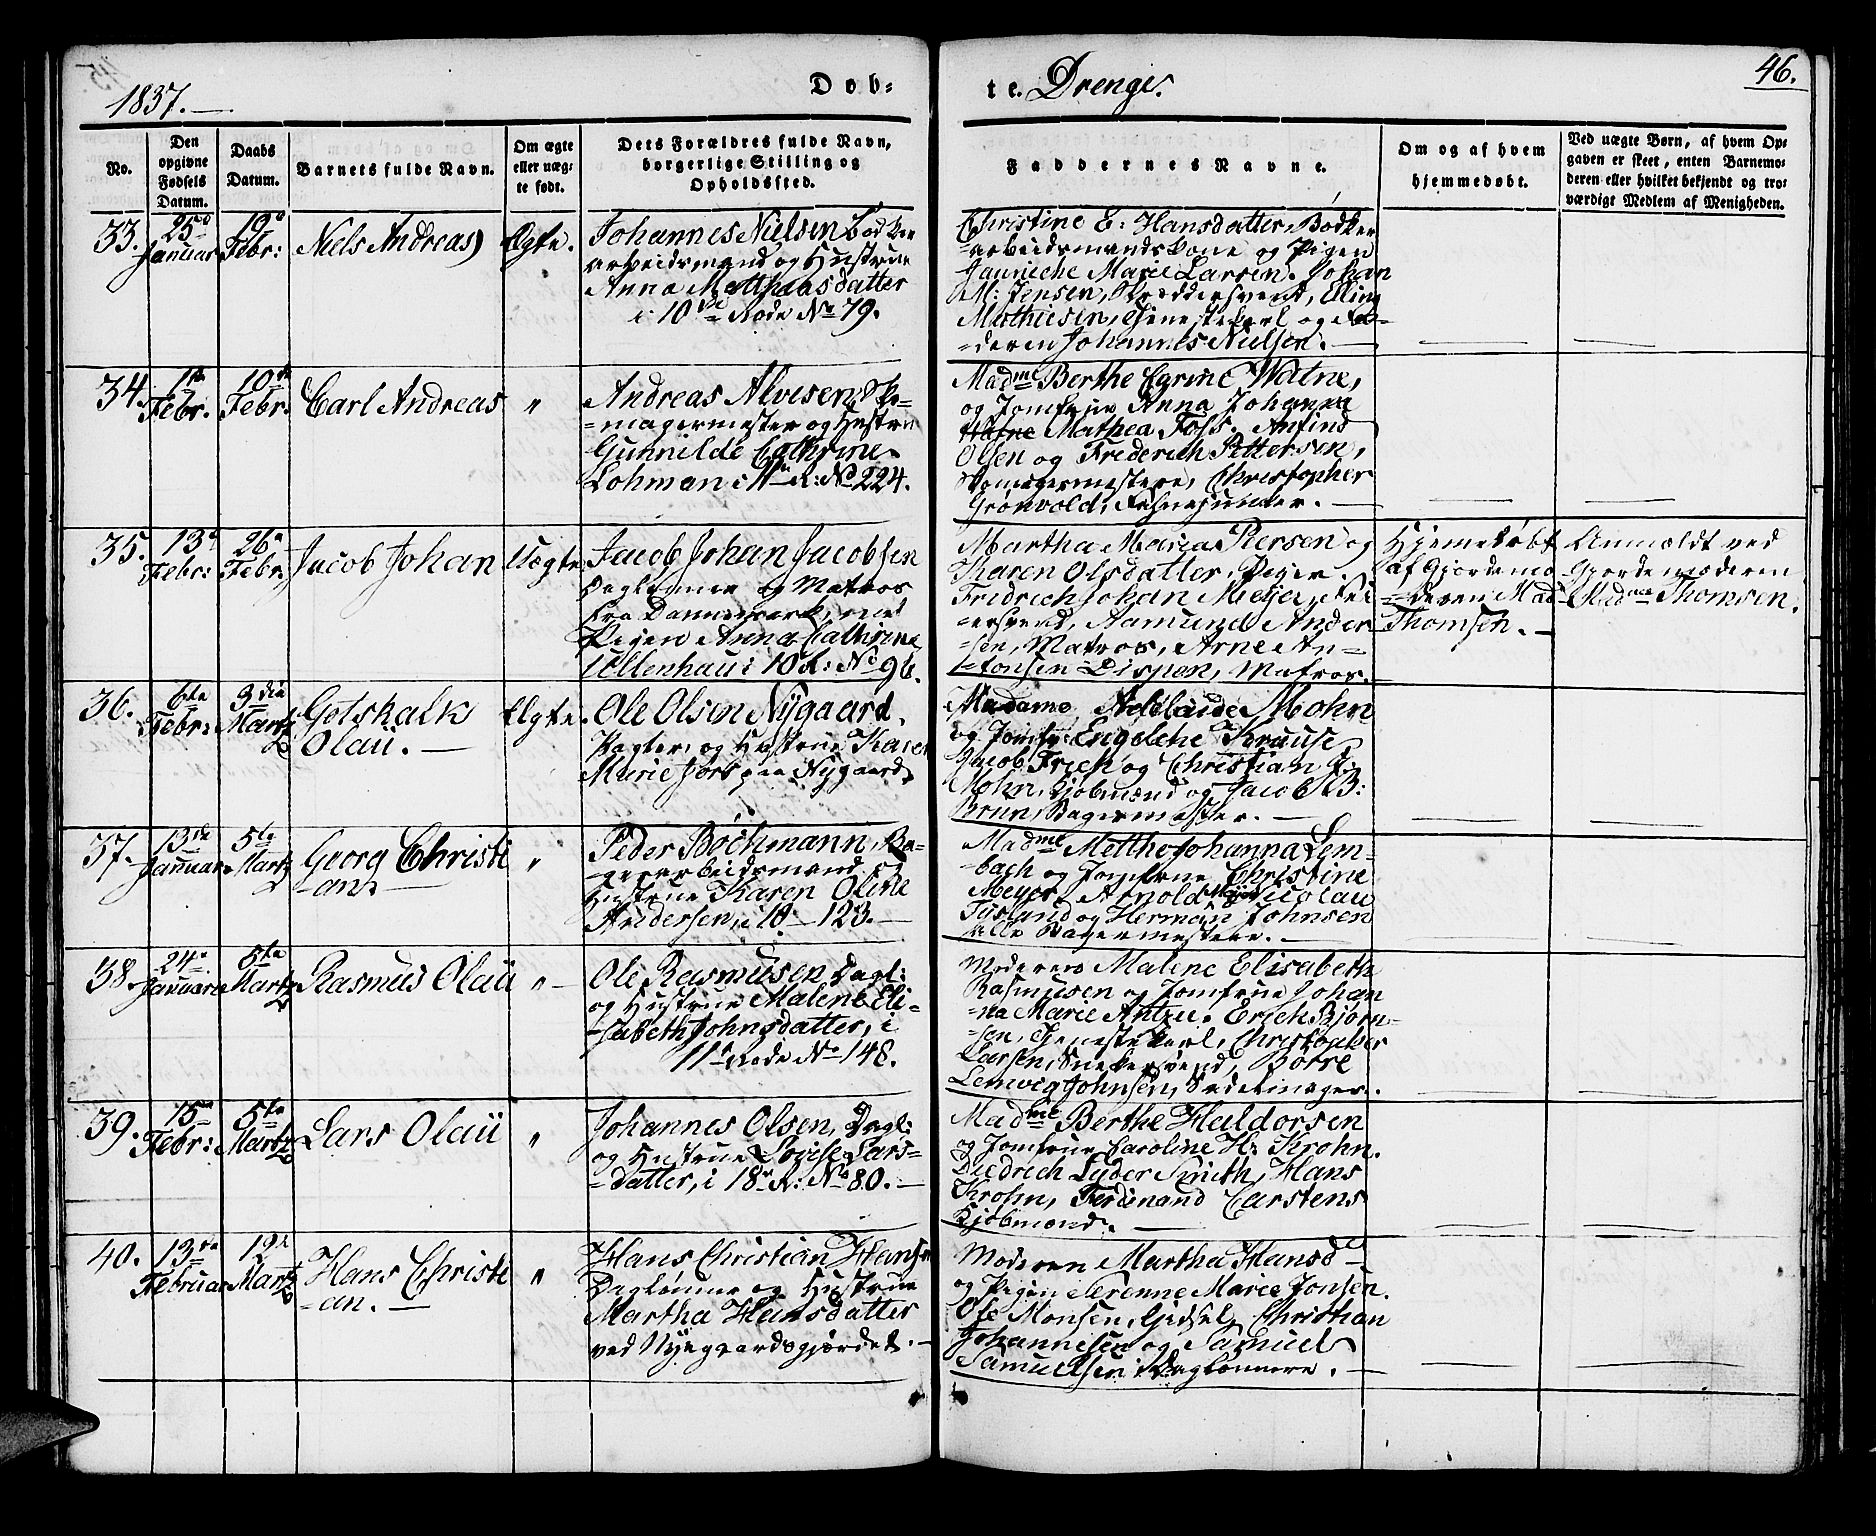 1837.
Døb-
te Drenge.
46.
No.
Den
opgivne
Fødsels
Datum.
Daabs
Datum.
Barnets fulde Navn.
Om ægte
eller uæg-
te født.
Dets Forældres fulde Navn,
borgerlige Stilling og
Opholdssted.
Faddernes Navne.
Om og af hvem
hjemmedøbt.
Ved uægte Børn, af hvem Op-
gaven er skeet, enten Barnemo-
deren eller hvilket bekjendt og tro-
værdigt Medlem af Menigheden.
33.
25de
Januar
19de
Febr:
Niels Andreas
Ægte.
Johannes Nielsen Bødker
arbeidsmand og Hustrue
Anna Matthæsdatter
i 10de Rode No 79.
Christine E: Hansdatter, Bødker
=arbeidsmandskone og Pigen
Janneche Marie Larsen. Johan
M: Jensen, Skræddersvend, Elling
Mathiesen, Tjenestekarl og Fa-
=deren Johannes Nielsen.
34.
1ste
Febr.
10de
Febr.
Carl Andreas
"
Andreas Alvesen, Sko-
=magermester og Hustrue
Gunnilde Cathrine
Lohman i 11te R: No 224.
Madme Berthe Cyrine Watne,
og Jomfrue Anna Johanna
Mathea Foss. Anfind
Olsen og Frederich Pettersen,
Skomagermestere, Christopher
Grønvold,
35.
13de
Febr:
26de
Febr.
Jacob Johan
Uægte
Jacob Johan Jacobsen
og Matros
fra Dannemark, med
Pigen Anna Cathrine
Ullenhau i 10 R: No 96.
Martha Maria Piersen og
Karen Olsdatter, Piger.
Fridrich Johan Meyer,
Aamund Ander
=sen, Matros, Arne An-
=tonsen Dispen, Matros.
Hjemmedøbt
af Gjordemo
=deren Mad
Thomsen.
Anmeldt ved
Gjordemoderen
Madme Thomsen.
36.
6te
Febr:
3die
Martz
Gotshalk
Olaü.
Ægte.
Ole Olsen Nygaard,
Pagter og Hustrue Karen
Marie paa Nygaard
Madame Adelaide Mohn
og Jomfr: Engelche Krause,
Jacob Frich og Christian
Mohn, Kjøbmænd og Jacob B:
Brun, Bagermester.
37.
13de
Januar
5te
Martz
Georg Christi
=an
"
Peder Bøchmann, Ba-
=gerarbeidsmand og
Hustrue Karen Oline
Andersen, i 10 - 123.
Madme Metthe Johanna Lem-
bach og Jomfrue Christine
Meyer, Arnold Meyer Nicolau
Tusland og Herman Johnsen
alle Bagermestere.
38.
24de
Januar
5te
Martz
Rasmus Olaü
"
Ole Rasmusen Dagl:
og Hustrue Malene Eli-
=sabeth Johnsdatter, i
11te Rode No 148.
Moderen Malene Elisabeth
Rasmusen og Jomfrue Johan
=na Marie Antzee. Erich Bjørn-
=sen, Tjenestekarl, Christopher
Larsen, Snekersvend, Børre
Lemvig Johnsen, Sadelmager.
39.
15de
Febr:
5te
Martz
Lars Olaü
"
Johannes Olsen, Dagl:
og Hustrue Lovise Lars-
=datter, i 18de R: No 80.
Madme Berthe Haldorsen
og Jomfrue Caroline H: Krohn.
Diedrich Lyder Smith, Hans
Krohn, Ferdinand Carstens
Kjøbmænd.
40.
13de
Februar
12te
Martz
Hans Christi
=an.
"
Hans Christian Hansen
Daglønner og Hustrue
Martha Hansdatter
ved Nyegaardsgjerdet.
Moderen Martha Hansd
og Pigen Serenne Marie Jonsen.
Ole Monsen, Christian
Johannesen og Samuel
Samuelsen Daglønnere.